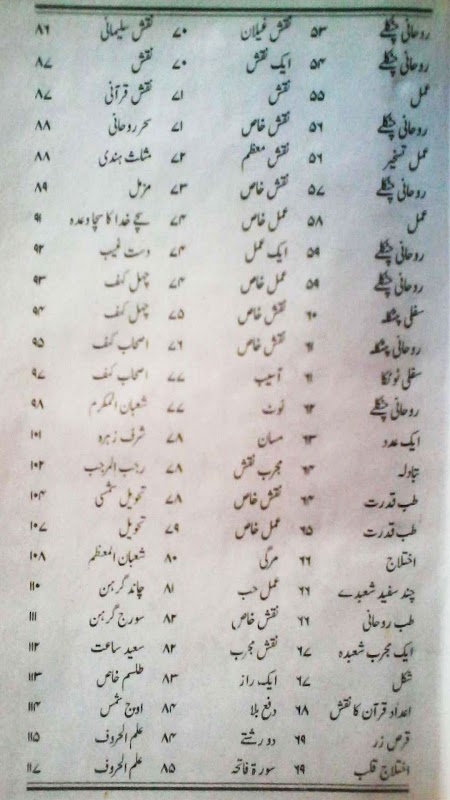 روحانی چٹکلے ۵۳ نقش غیلان ۷۰ نقش سلیمانی ۸۶
روحانی چٹکلے ۵۴ ایک نقش ۷۰ نقش ۸۷
عمل ۵۵ نقش ۷۱ نقش قرآنی ۸۷
روحانی چٹکلے ۵۶ نقش خاص ۷۱ سحر روحانی ۸۸
عمل تسخیر ۵۶ نقش معظم ۷۲ مثلث ہندی ۸۸
روحانی چٹکلے ۵۷ نقش خاص ۷۳ مزمل ۸۹
عمل ۵۸ عمل خاص ۷۴ سچے خدا کا سچا وعدہ ۹۱
روحانی چٹکلے ۵۹ ایک عمل ۷۴ دست غیب ۹۲
روحانی چٹکلے ۵۹ عمل خاص ۷۴ چہل کہف ۹۳
سفلی چٹکلہ ۶۰ نقش خاص ۷۵ چہل کہف ۹۴
روحانی چٹکلہ ۶۱ نقش خاص ۷۶ اصحاب کہف ۹۵
سفلی ٹوٹکا ۶۱ آسیب ۷۷ اصحاب کہف ۹۷
روحانی چٹکلے ۶۲ نوٹ ۷۷ شعبان المکرم ۹۸
ایک عدد ۶۳ مسان ۷۸ شرف زہرہ ۱۰۱
تبادلہ ۶۴ مجرب نقش ۷۸ رجب المرجب ۱۰۲
طب قدرت ۶۴ نقش خاص ۷۸ تحویل شمسی ۱۰۴
طب قدرت ۶۵ عمل خاص ۷۹ تحویل ۱۰۷
اختلاج ۶۶ مرگی ۸۰ شعبان المعظم ۱۰۸
چند سفید شعبدے ۶۶ عمل حب ۸۱ چاند گرہن ۱۱۰
طب روحانی ۶۶ نقش خاص ۸۲ سورج گرہن ۱۱۱
ایک مجرب شعبدہ ۶۷ نقش مجرب ۸۲ سعید ساعت ۱۱۲
شکل ۶۷ ایک راز ۸۳ طلسم خاص ۱۱۳
اعداد قرآن کا نقش ۶۸ دفع بلا ۸۴ اوج شمس ۱۱۴
قرص زر ۶۹ دو رشتے ۸۴ علم الحروف ۱۱۵
اختلاج قلب ۶۹ سورۃ فاتحہ ۸۵ علم الحروف ۱۱۷